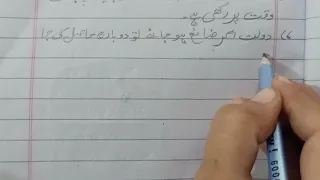 وقت پر رکھی ہے۔
(۶ دولت اگر ضائع ہو جائے تو دوبارہ حاصل کی جا